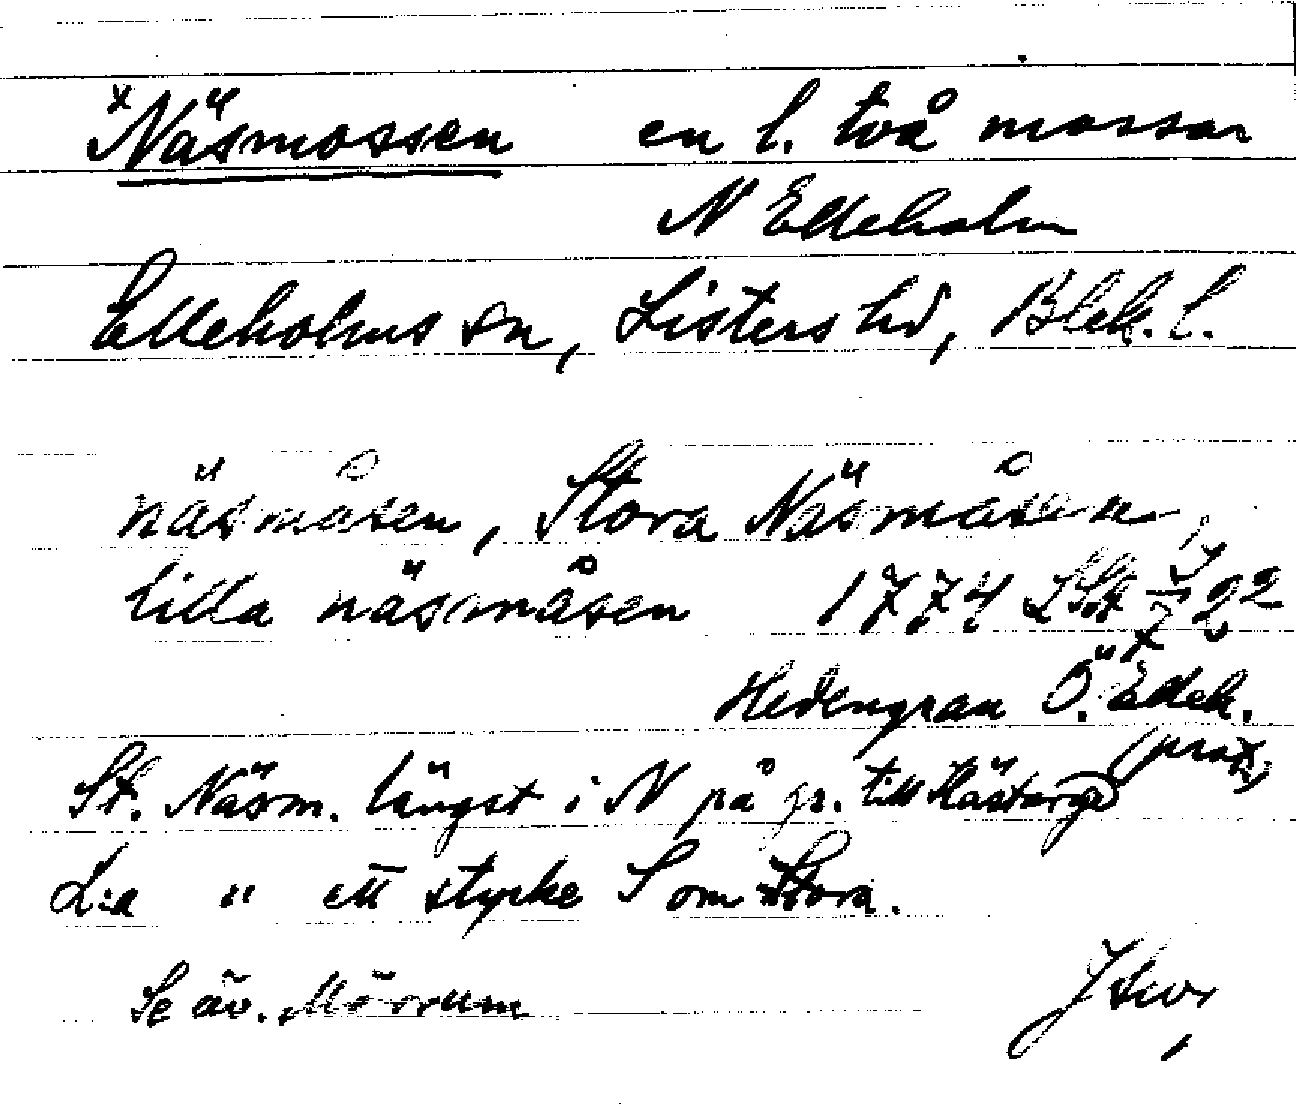 *Näsmossen en l. två mossar
N Elleholm
Elleholms sn, Listers hd, Blek. l.
näsmåsen, Stora Näsmåsen,
lilla näsmåsen 1774 LSA
Hedengran Ö. Elleh.
St. Näsm. längst i N på gr. till Hästaryd
L:a " ett stycke S om Stora.
Se äv. Mörrum